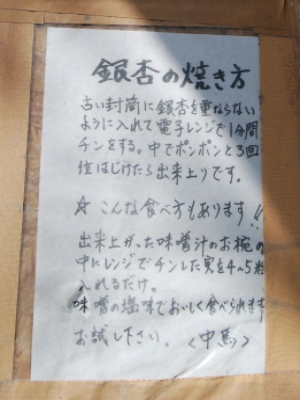 銀杏の焼き方
古い封筒に銀杏を重ならない
ように入れて電子レンジで1分間
チンをする。中でポンポンと3回
位はじけたら出来上りです。
☆ こんな食べ方もあります!!
出来上がった味噌汁のお椀の
中にレンジでチンした実を4〜5粒
入れるだけ。
味噌の塩味でおいしく食べられます
お試し下さい。 <中島>